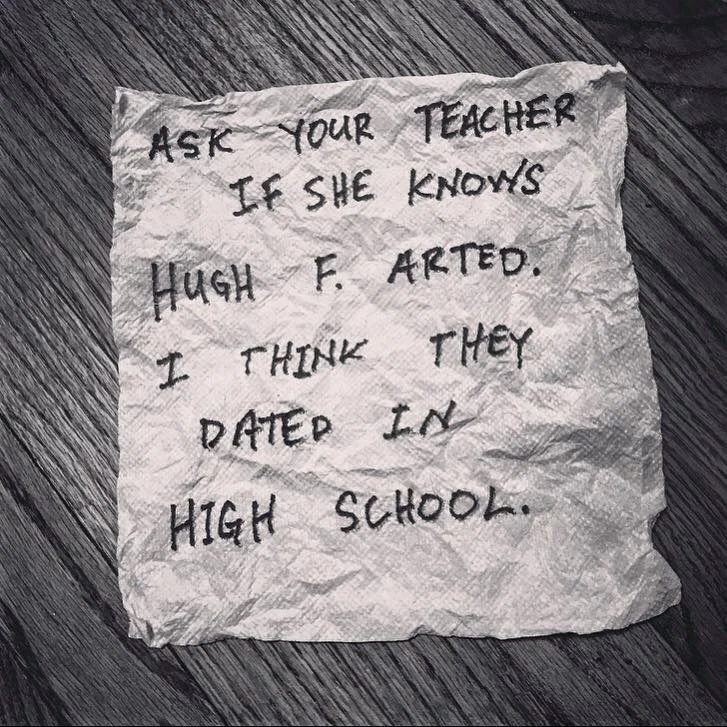 ASK YOUR TEACHER
IF SHE KNOWS
HUGH F. ARTED.
I THINK THEY
DATED IN
HIGH SCHOOL.